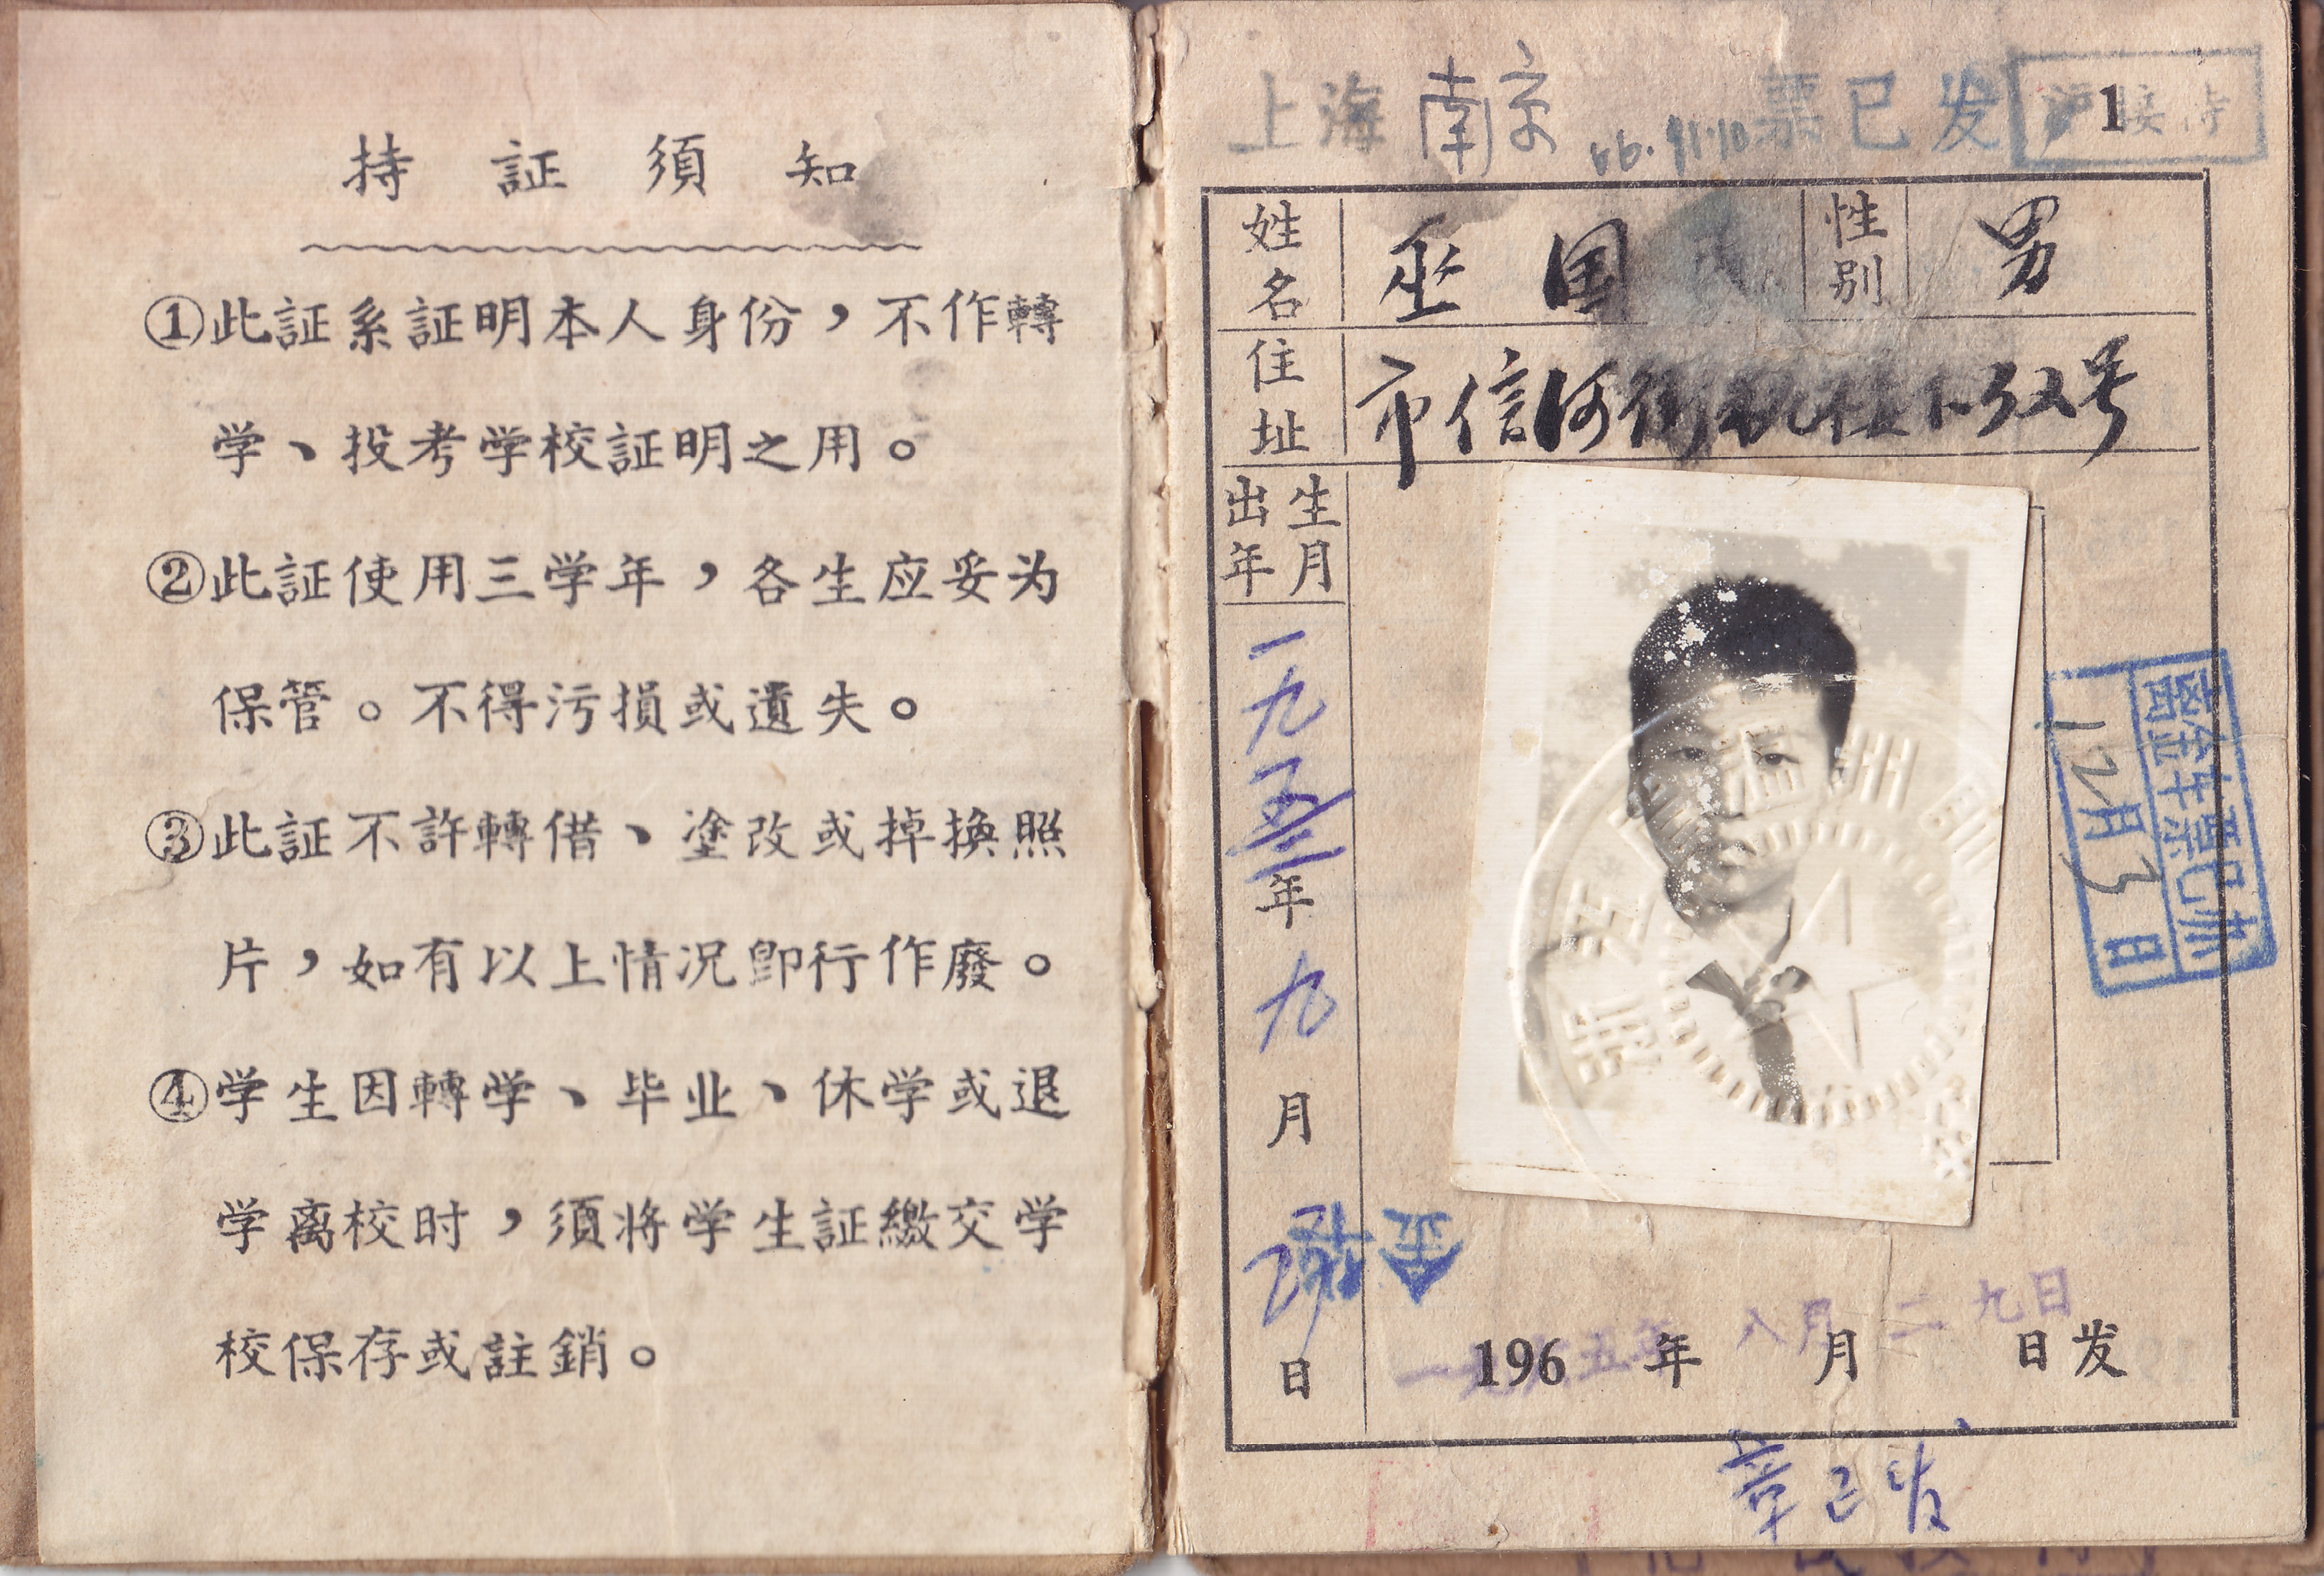 持証須知
①此証系証明本人身份，不作轉
学、投考学校証明之用。
②此証使用三学年，各生应妥为
保管。不得污損或遺失。
③此証不許轉借、塗改或掉換照
片，如有以上情况卽行作廢。
④学生因轉学、毕业、休学或退
学离校时，須将学生証繳交学
校保存或註銷。
上海 南京 66.11.10 票已发
1
姓名 巫国
性别 男
住址 市信河街 号
出生年月
一九五三年九月 日
12月3日
196 年 月 日发
五年八月二九日
章已发